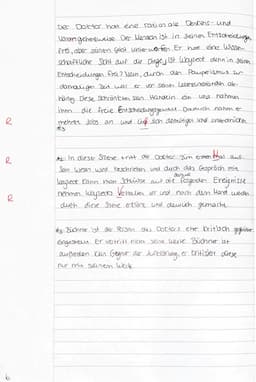 Der Doktor hat eine rationale Denkens- und
Der Mensch ist in seinen Entscheidungen
frei, aber seinem Geist unterworfen. Er hat eine
schaftliche Sicht auf die Dinge. Ist Woyzeck denn in seinen
Entscheidungen frei? Nein, durch den Pauperismus zur
damaligen Zeit war er von seinen
hängig. Diese schränkten sein Handeln ein und nahmen
ihm die freie Entscheidungsgewalt. Dadurch nahm er
mehrere Jobs an und ließ sich demütigen und
R
*2: In dieser Szene tritt der Doktor zum ersten Mal auf.
R
Sein Wesen wird beschrieben und durch das Gespräch mit
Woyzeck kann man Schlüsse auf die folgenden Ereignisse
nehmen. Woyzecks Verhalten vor und nach dem Mord werden
R
durch diese Szene erklärt und deutlich gemacht.
*3: Büchner ist der Person des Doktors eher kritisch gegenüber
eingestellt. Er vertritt nicht seine Werte. Büchner ist
außerdem kein Gegner der Aufklärung, er kritisiert diese
nur mit seinem Werk.
6